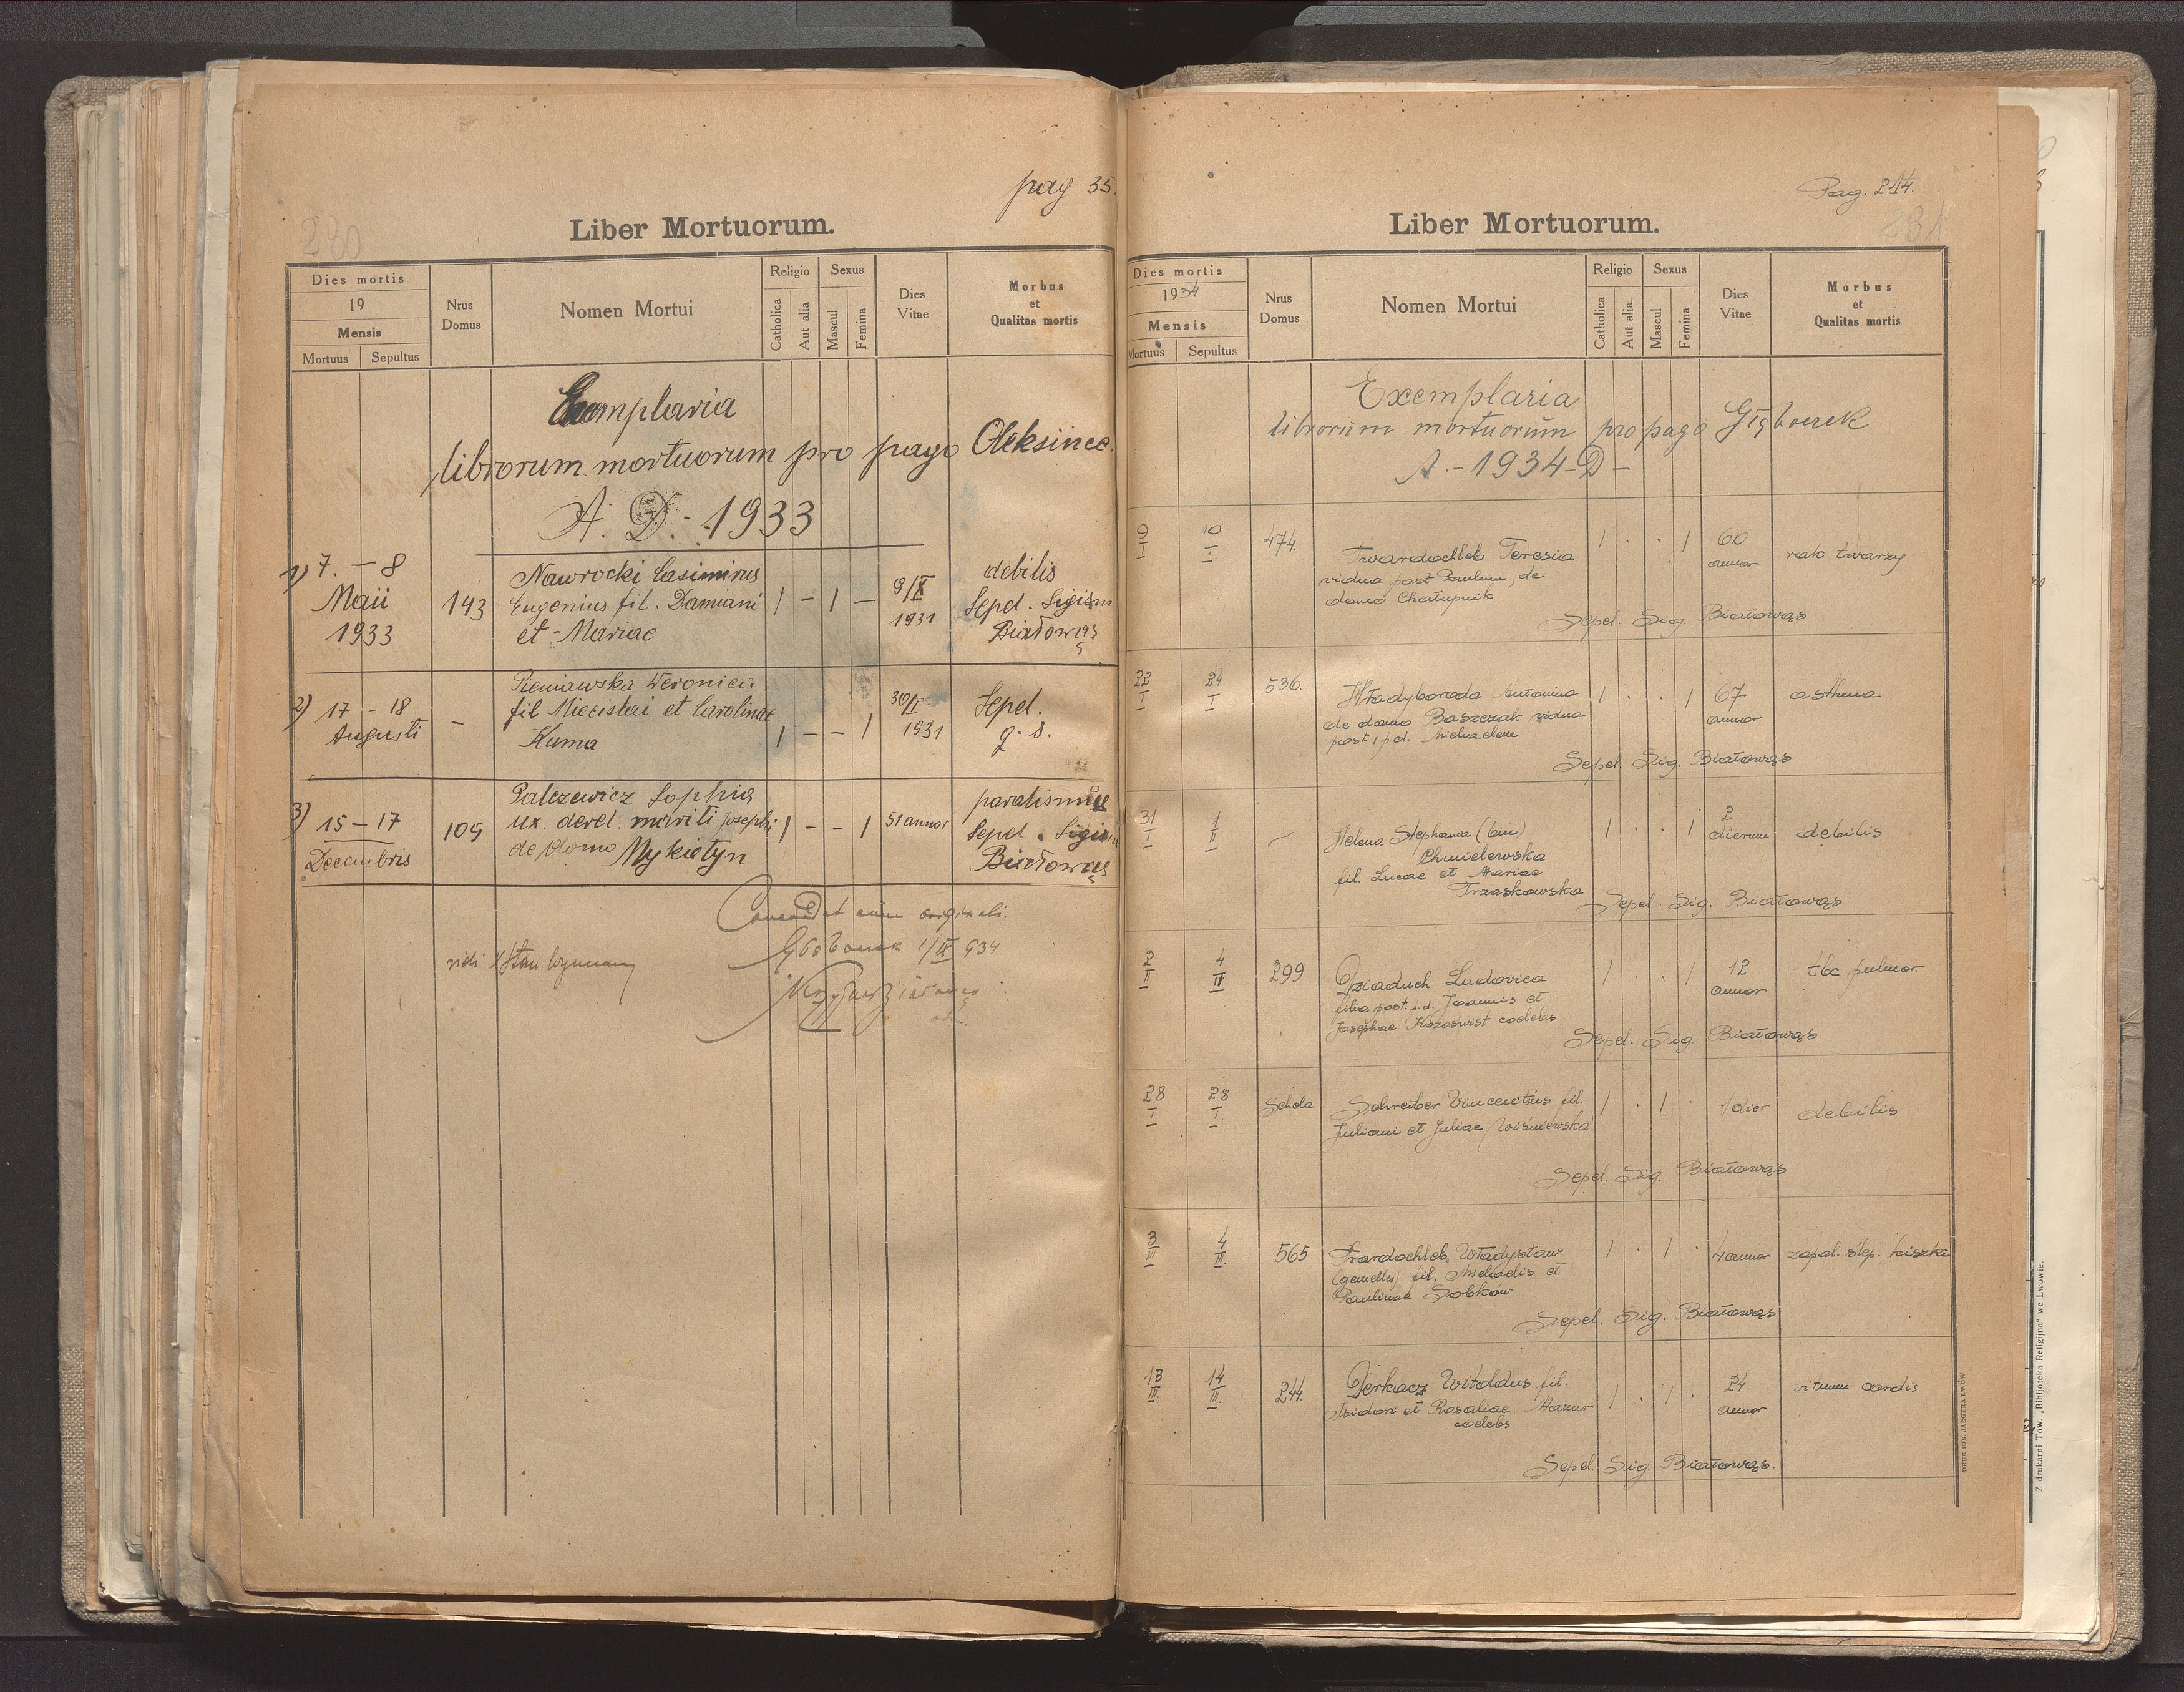 pag 35
280
Liber Mortuorum.
Dies mortis
19
Mensis
Mortuus Sepultus
Nrus Domus
Nomen Mortui
Religio
Catholica
Aut alia
Sexus
Mascul
Femina
Dies Vitae
Morbus et Qualitas mortis
Exemplaria
librorum mortuorum pro pago Oleksince
A. D. 1933
1) 7. – 8 Maii 1933 143 Nawrocki Casimirus 1 – 1 – 9/X 1931 debilis
Eugenius fil. Damiani Sepel. Sigism
et Mariae Białowąs
2) 17 – 18 Augusti – Pieniawska Weronica 1 – – 1 30/I 1931 Sepel.
fil Miecislai et Carolinae q. s.
Kuma
3) 15 – 17 Decembris 109 Palczewicz Sophia 1 – – 1 51 annor paralismus
ux. derel. mariti Josephi Sepel. Sigism
de domo Mykietyn Białowąs
Concordat cum originali.
Głęboczek 1/IX 934
vidi
Pag. 214.
231
Liber Mortuorum.
Dies mortis
1934
Mensis
Mortuus Sepultus
Nrus Domus
Nomen Mortui
Religio
Catholica
Aut alia
Sexus
Mascul
Femina
Dies Vitae
Morbus et Qualitas mortis
Exemplaria
librorum mortuorum pro pago Głęboczek
A. - 1934 - D -
9/I 10/I 474. Twardochleb Teresia 1 . . 1 60 annor rak twarzy
vidua post Paulum, de
domo Chałupnik
Sepel. Sig. Białowąs
22/I 24/I 536. Hładyboroda Antonina 1 . . 1 67 annor asthma
de domo Baszczak vidua
post p.d. Michaelem
Sepel. Sig. Białowąs
31/I 1/II – Helena Stephania (bin) 1 . . 1 2 dierum debilis
Chmielewska
fil. Lucae et Mariae
Trzaskowska
Sepel. Sig. Białowąs
2/II 4/IV 299 Dziaduch Ludovica 1 . . 1 12 annor tbc pulmor.
filia post. p.d. Joannis et
Josephae coelebs
Sepel. Sig. Białowąs
28/I 28/I Schola Schreiber Vincentius fil. 1 . 1 . 1 dier debilis
Juliani et Juliae Wiśniewska
Sepel. Sig. Białowąs
3/III 4/III. 565 Twardochleb Władysław 1 . 1 . 4 annor zapal. ślep. kiszki
(gemellus) fil. Michaelis et
Paulinae Sobków
Sepel. Sig. Białowąs
13/III. 14/III. 244. Derkacz Witoldus fil. 1 . 1 . 24 annor vitium cordis
Isidori et Rosaliae Mazur
coelebs
Sepel. Sig. Białowąs.
DRUK IGN. JAEGERA LWÓW
Z drukarni Tow. „Bibljoteka Religijna" we Lwowie.